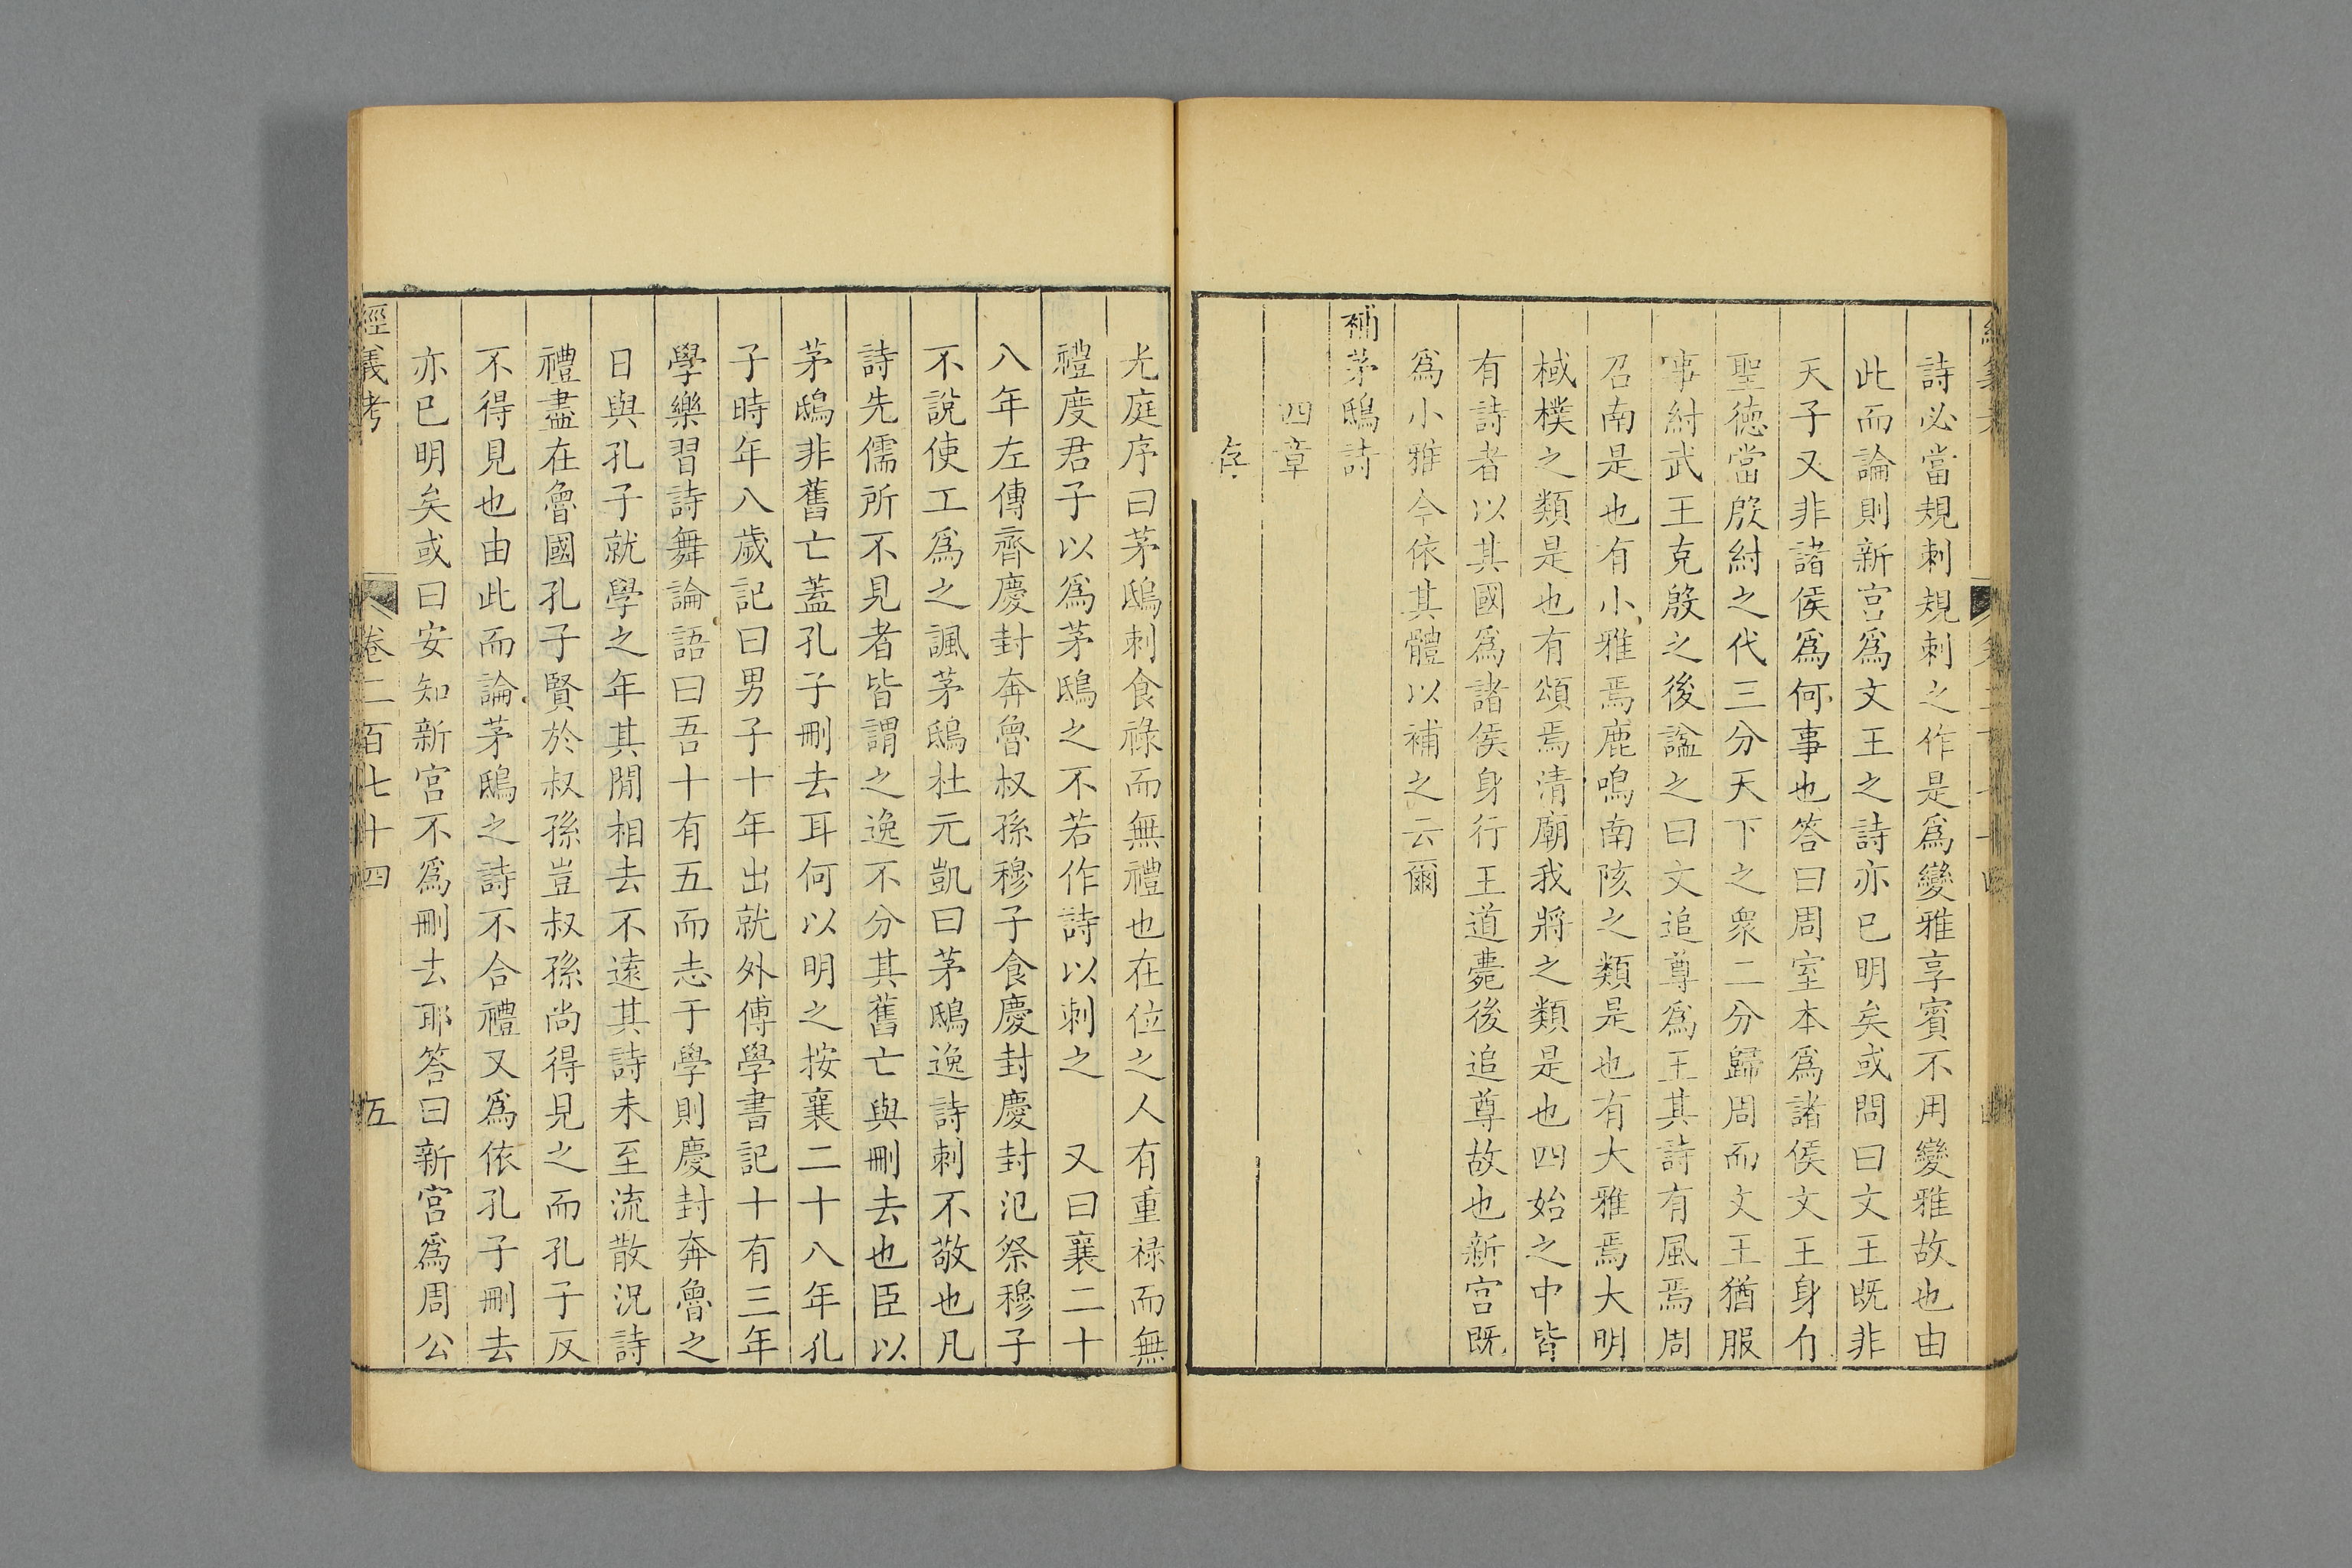 詩必當規刺規刺之作是爲變雅享賓不用變雅故也由
此而論則新宮爲文王之詩亦已明矣或問曰文王既非
天子又非諸侯爲何事也答曰周室本爲諸侯文王身有
聖德當殷紂之代三分天下之衆二分歸周而文王猶服
事紂武王克殷之後諡之曰文追尊爲王其詩有風焉周
召南是也有小雅焉鹿鳴南陔之類是也有大雅焉大明
棫樸之類是也有頌焉清廟我將之類是也四始之中皆
有詩者以其國爲諸侯身行王道薨後追尊故也新宮既
爲小雅今依其體以補之云爾
補茅鴟詩
四章
存
光庭序曰茅鴟刺食祿而無禮也在位之人有重祿而無
禮度君子以爲茅鴟之不若作詩以刺之　又曰襄二十
八年左傳齊慶封奔魯叔孫穆子食慶封慶封氾祭穆子
不說使工爲之諷茅鴟杜元凱曰茅鴟逸詩刺不敬也凡
詩先儒所不見者皆謂之逸不分其舊亡與刪去也臣以
茅鴟非舊亡蓋孔子刪去耳何以明之按襄二十八年孔
子時年八歲記曰男子十年出就外傅學書記十有三年
學樂習詩舞論語曰吾十有五而志于學則慶封奔魯之
日與孔子就學之年其閒相去不遠其詩未至流散況詩
禮盡在魯國孔子賢於叔孫豈叔孫尚得見之而孔子反
不得見也由此而論茅鴟之詩不合禮又爲依孔子刪去
亦已明矣或曰安知新宮不爲刪去耶答曰新宮爲周公
經義考　卷二百七十四　五